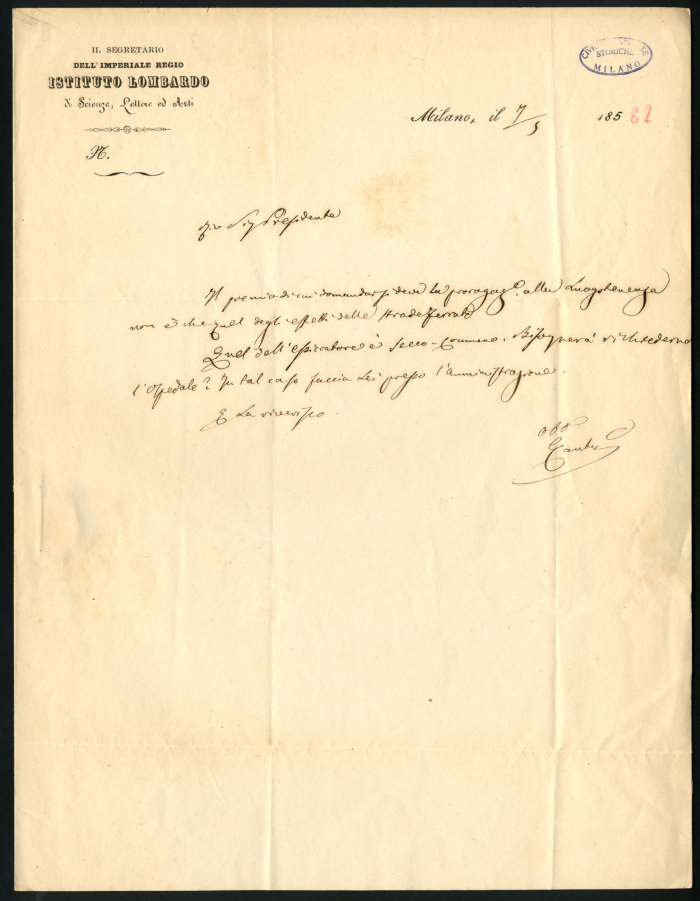 IL SEGRETARIO
DELL'IMPERIALE REGIO
ISTITUTO LOMBARDO
di Scienze, Lettere ed Arti
N.
STORICHE
MILANO
Milano, il 7/5 185 82
Sig Presidente
Il premio di cui domandarsi deve la proroga alla Luogotenenza
non è che quel degli effetti delle strade ferrate
Quel dell'essicatore è Secco-Comuno. Bisognerà richiederne
l'Ospedale? In tal caso faccia Lei presso l'Amministrazione.
E La riverisco.
obb
Cantù